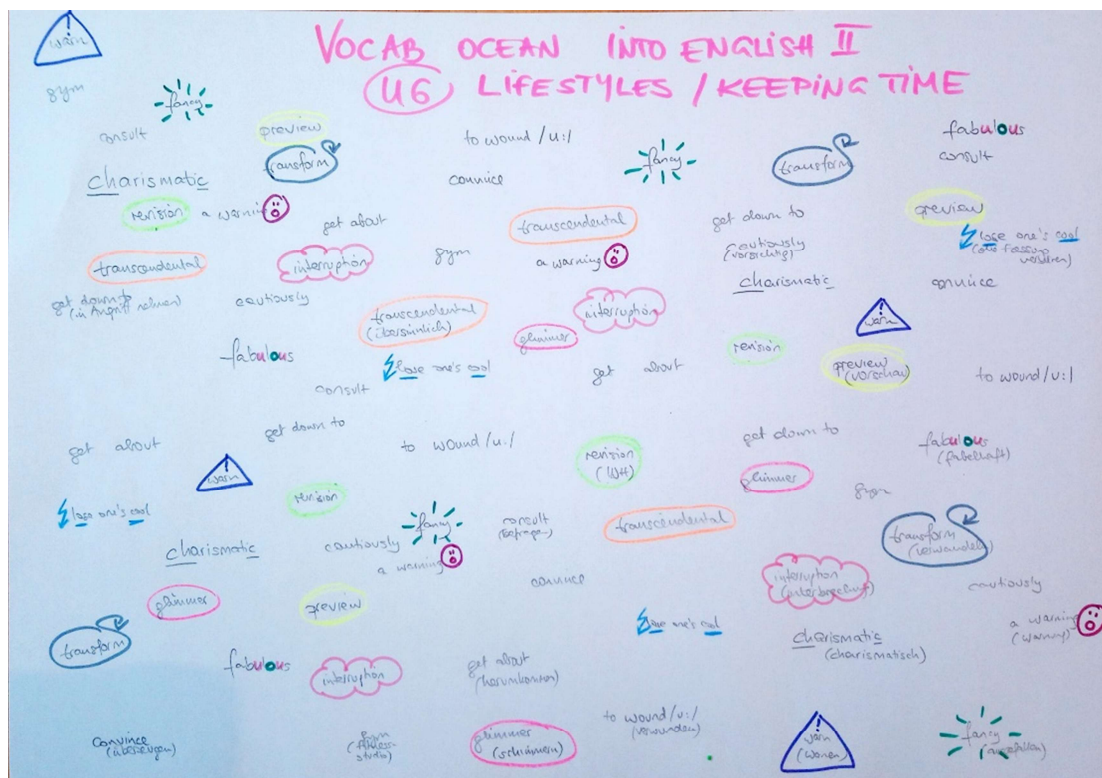 warn
VOCAB OCEAN INTO ENGLISH II
U6 LIFESTYLES / KEEPING TIME
gym
fancy
consult
preview
to wound /u:/
fabulous
transform
fancy
transform
consult
charismatic
convince
revision
a warning
get about
transcendental
get down to
preview
transcendental
interruption
gym
a warning
cautiously
(vorsichtig)
lose one's cool
(die Fassung
verlieren)
get down to
(in Angriff nehmen)
cautiously
transcendental
(übersinnlich)
interruption
charismatic
convince
glimmer
warn
fabulous
lose one's cool
get about
revision
preview
(Vorschau)
to wound /u:/
consult
get about
get down to
to wound /u:/
revision
(WH)
get down to
fabulous
(fabelhaft)
warn
glimmer
lose one's cool
revision
fancy
consult
(befragen)
transcendental
gym
transform
(verwandeln)
charismatic
cautiously
a warning
convince
interruption
(Unterbrechung)
cautiously
glimmer
preview
lose one's cool
a warning
(Warnung)
transform
charismatic
(charismatisch)
fabulous
interruption
get about
(herumkommen)
convince
(überzeugen)
gym
(Fitness-
studio)
glimmer
(schimmern)
to wound /u:/
(verwunden)
warn
(warnen)
fancy
(ausgefallen)